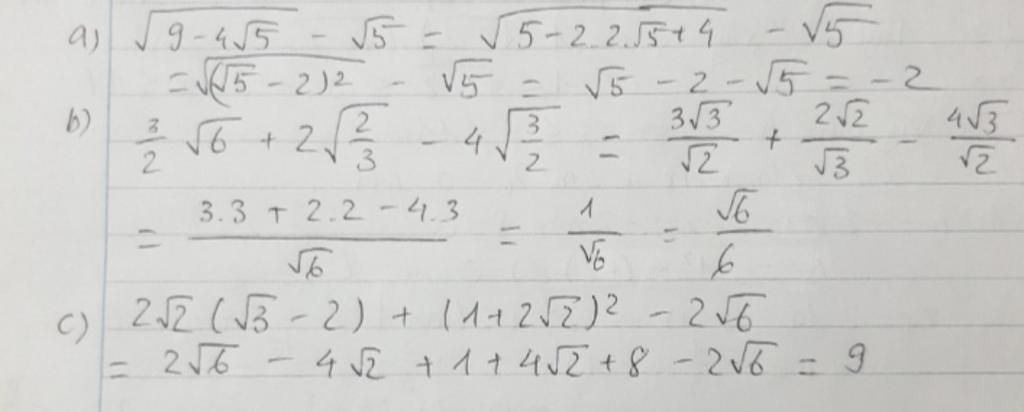 a) √(9 - 4√5) - √5 = √(5 - 2.2.√5 + 4) - √5
= √((√5 - 2)²) - √5 = √5 - 2 - √5 = -2
b) 3/2 √6 + 2√(2/3) - 4√(3/2) = 3√3/√2 + 2√2/√3 - 4√3/√2
= (3.3 + 2.2 - 4.3)/√6 = 1/√6 = √6/6
c) 2√2 (√3 - 2) + (1 + 2√2)² - 2√6
= 2√6 - 4√2 + 1 + 4√2 + 8 - 2√6 = 9